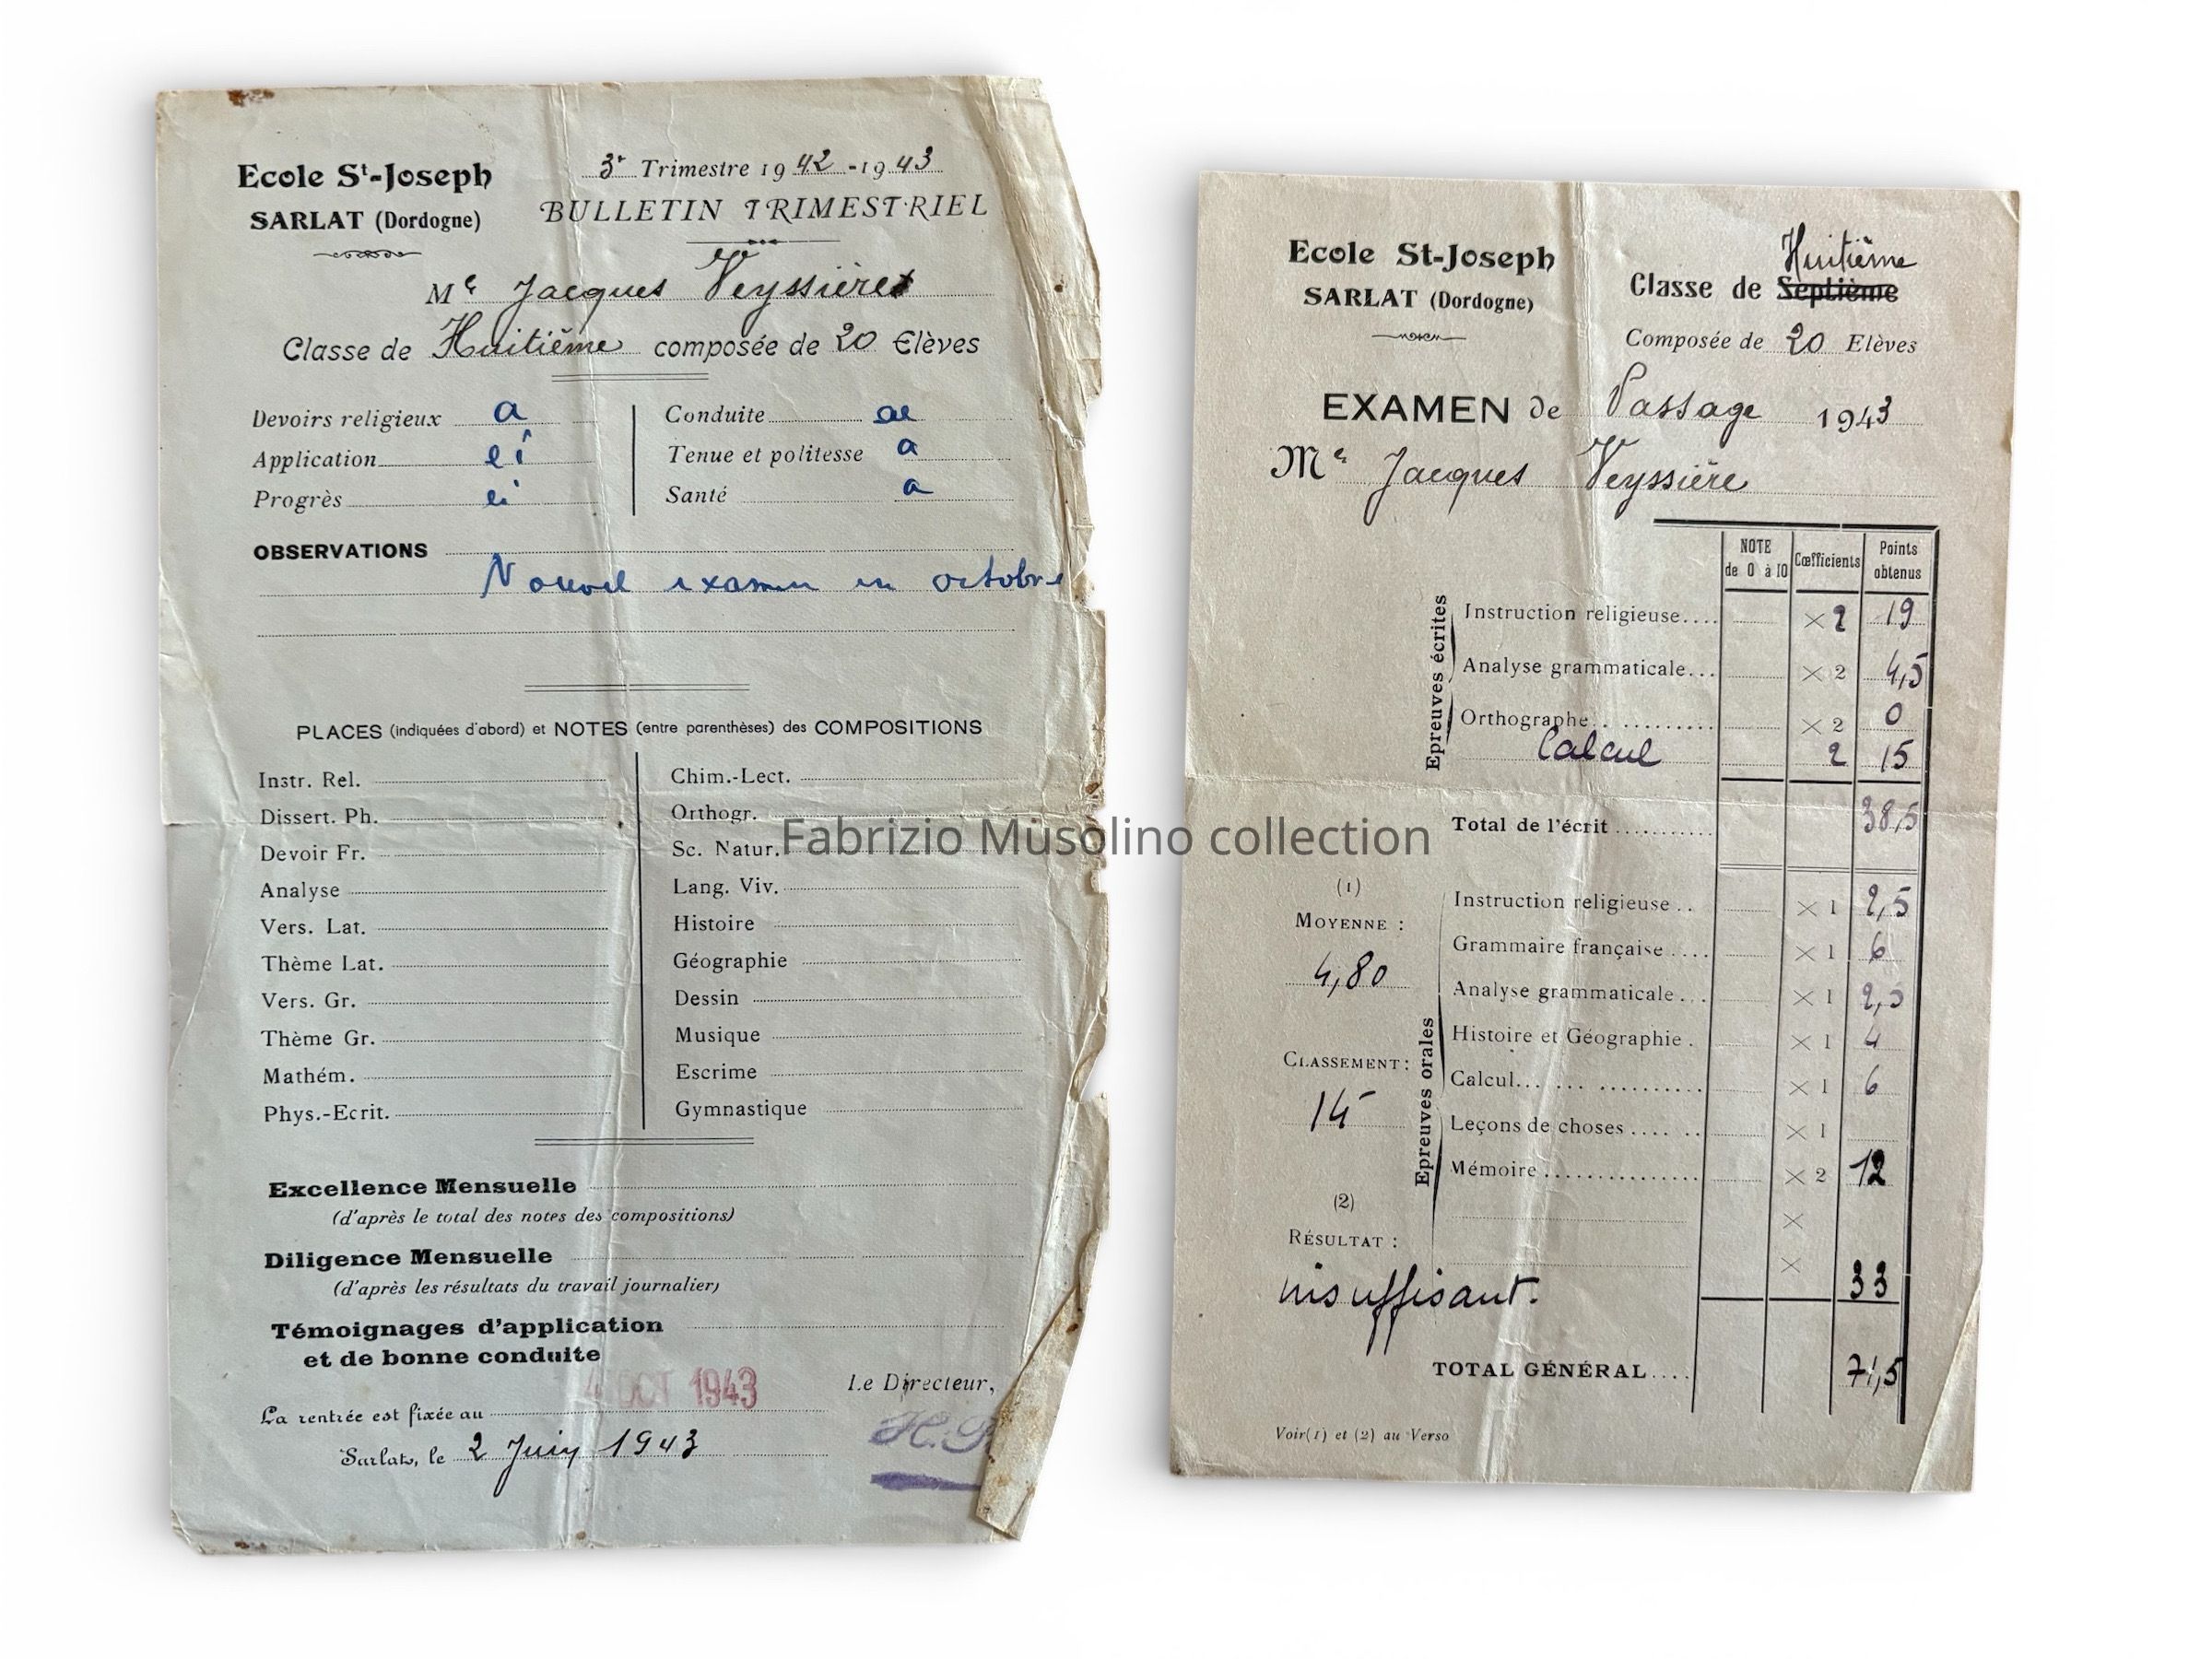 Ecole St-Joseph
SARLAT (Dordogne)
3e Trimestre 1942-1943
BULLETIN TRIMESTRIEL
Me Jacques Veyssière
Classe de Huitième composée de 20 Elèves
Devoirs religieux a
Application ei
Progrès ei
Conduite ae
Tenue et politesse a
Santé a
OBSERVATIONS
Nouvel examen en octobre
PLACES (indiquées d'abord) et NOTES (entre parenthèses) des COMPOSITIONS
Instr. Rel.
Dissert. Ph.
Devoir Fr.
Analyse
Vers. Lat.
Thème Lat.
Vers. Gr.
Thème Gr.
Mathém.
Phys.-Ecrit.
Chim.-Lect.
Orthogr.
Sc. Natur.
Lang. Viv.
Histoire
Géographie
Dessin
Musique
Escrime
Gymnastique
Excellence Mensuelle
(d'après le total des notes des compositions)
Diligence Mensuelle
(d'après les résultats du travail journalier)
Témoignages d'application
et de bonne conduite
4 OCT 1943
Le Directeur,
La rentrée est fixée au
Sarlat, le 2 Juin 1943
Fabrizio Musolino collection
Ecole St-Joseph
SARLAT (Dordogne)
Huitième
Classe de Septième
Composée de 20 Elèves
EXAMEN de Passage 1943
Me Jacques Veyssière
NOTE de 0 à 10
Cœfficients
Points obtenus
Epreuves écrites
Instruction religieuse.... × 2 19
Analyse grammaticale... × 2 4,5
Orthographe.. ......... × 2 0
Calcul 2 15
Total de l'écrit .......... 38,5
(1)
MOYENNE :
4,80
CLASSEMENT :
15
(2)
RÉSULTAT :
insuffisant.
Epreuves orales
Instruction religieuse .. × 1 2,5
Grammaire française.... × 1 6
Analyse grammaticale... × 1 2,5
Histoire et Géographie . × 1 4
Calcul... ... .......... × 1 6
Leçons de choses .... .. × 1
Mémoire ............... × 2 12
×
× 33
TOTAL GÉNÉRAL.... 71,5
Voir (1) et (2) au Verso